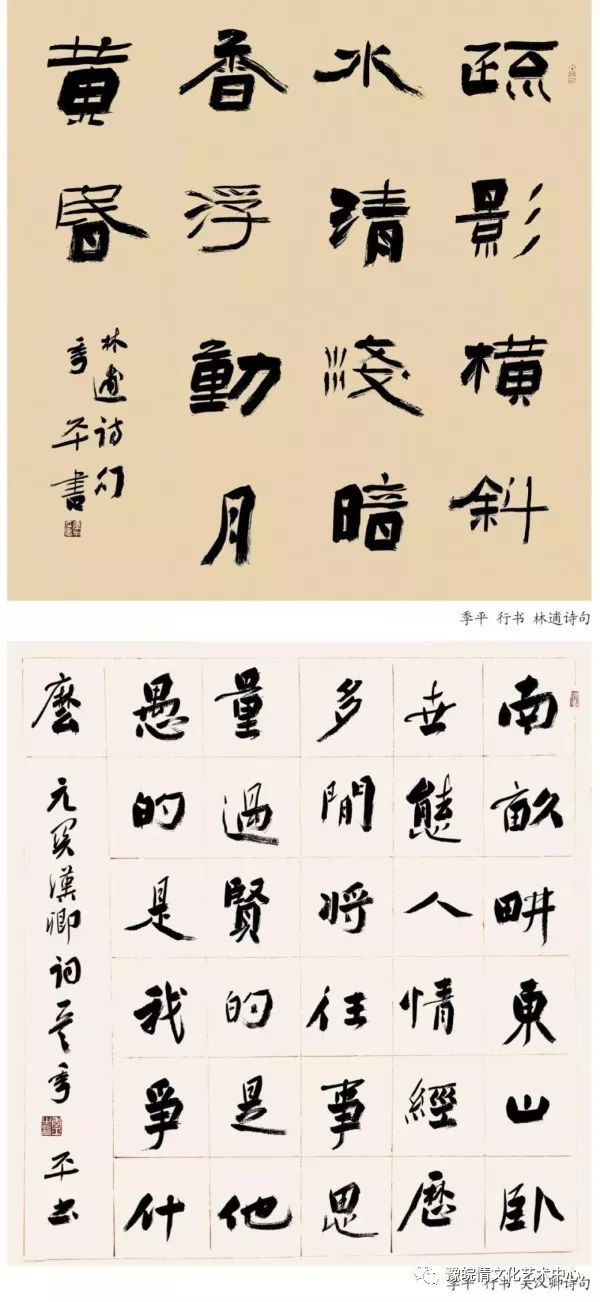 疏影橫斜
水清淺暗
香浮動月
黄昏
林逋诗句
季平書
季平 行书 林逋诗句
南畝畊東山卧
世態人情經歷
多閒將往事思
量過賢的是他
愚的是我爭什
麼
元関漢卿词 季平书
豫皖情文化艺术中心
季平 行书 关汉卿诗句